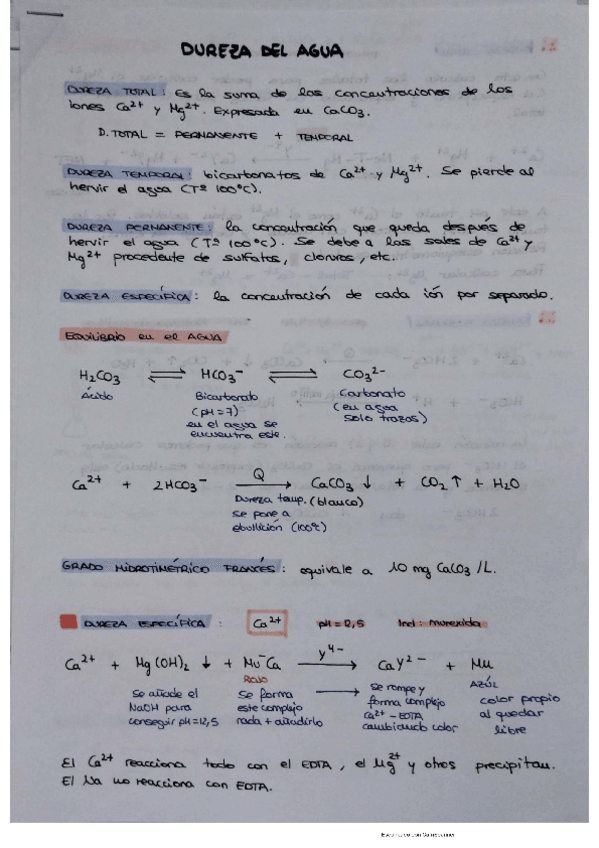 DUREZA DEL AGUA
DUREZA TOTAL: Es la suma de las concentraciones de los
iones Ca²⁺ y Mg²⁺. Expresada en CaCO₃.
D. TOTAL = PERMANENTE + TEMPORAL
DUREZA TEMPORAL: bicarbonatos de Ca²⁺ y Mg²⁺. Se pierde al
hervir el agua (Tª 100ºC).
DUREZA PERMANENTE: la concentración que queda después de
hervir el agua (Tª 100ºC). Se debe a las sales de Ca²⁺ y
Mg²⁺ procedente de sulfatos, cloruros, etc.
DUREZA ESPECÍFICA: la concentración de cada ión por separado.
EQUILIBRIO en el AGUA
H₂CO₃ ⇌ HCO₃⁻ ⇌ CO₃²⁻
Ácido Bicarbonato Carbonato
(pH=7) (en agua
en el agua se solo trazas)
encuentra este.
Ca²⁺ + 2HCO₃⁻ Q → CaCO₃ ↓ + CO₂ ↑ + H₂O
Dureza temp. (blanco)
se pone a
ebullición (100ºC)
GRADO HIDROTIMÉTRICO FRANCÉS: equivale a 10 mg CaCO₃/L.
DUREZA ESPECÍFICA: Ca²⁺ pH=12,5 Ind: murexida
Ca²⁺ + Mg(OH)₂ ↓ + Mu⁻Ca Y⁴⁻ → CaY²⁻ + Mu
ROJO AZÚL
se añade el se forma → se rompe y color propio
NaOH para este complejo forma complejo al quedar
conseguir pH=12,5 nada + añadirlo Ca²⁺-EDTA libre
cambiando color
El Ca²⁺ reacciona todo con el EDTA, el Mg²⁺ y otros precipitan.
El Na no reacciona con EDTA.